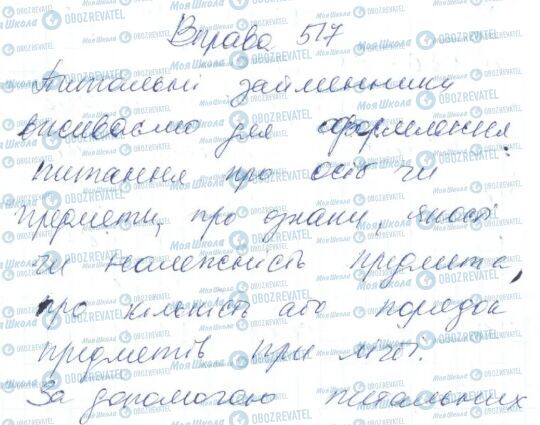 Вправа 517
Питальні займенники
вживаємо для оформлення
питання про осіб чи
предмети, про ознаки, якості
чи належність предмета,
про кількість або порядок
предметів при лічбі.
За допомогою питальних